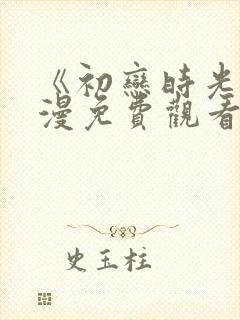 《初戀時光
漫免費觀看
史玉柱